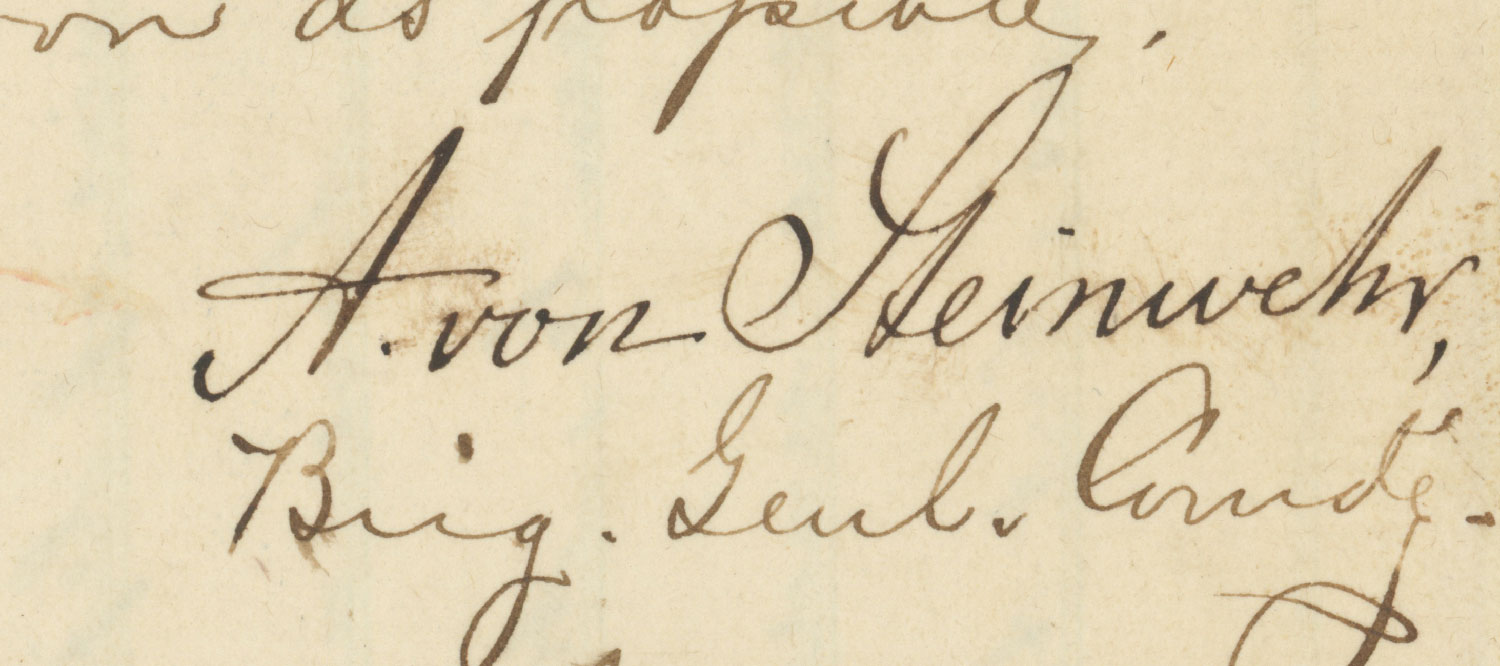 on as possible,
A. von Steinwehr,
Brig. Genl. Comdg.